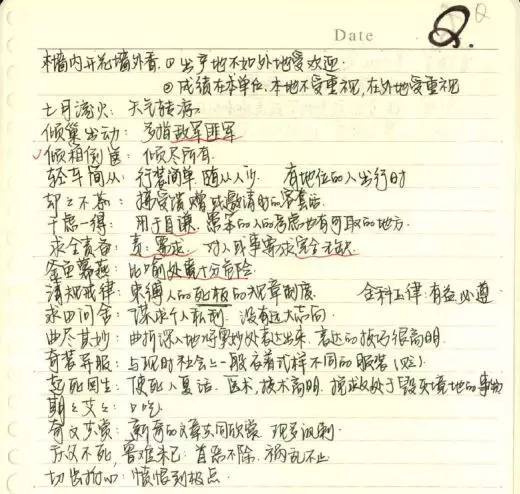 Date
Q.
Q
木墙内开花墙外香. ① 出产地不如外地受欢迎.
② 成绩在本单位.本地不受重视,在外地受重视
七月流火: 天气转凉.
倾巢出动: 多指敌军匪军
√倾箱倒箧: 倾尽所有.
轻车简从: 行装简单.随从人少. 有地位的人出行时
却之不恭: 接受馈赠或邀请时的客套话.
千虑一得: 用于自谦. 愚笨的人的考虑也有可取的地方.
求全责备: 责:要求. 对人或事要求完全无缺
釜鱼幕燕: 比喻处境十分危险
清规戒律: 束缚人的死板的规章制度. 金科玉律:有益必遵
求田问舍: 谋求个人私利 没有远大志向
曲尽其妙: 曲折深入地将要妙处表达出来.表达的技巧很高明.
奇装异服: 与现时社会上一般衣着式样不同的服装(贬)
起死回生: 使死人复活. 医术,技术高明. 挽救处于毁灭境地的事物
期期艾艾: 口吃
奇文共赏: 新奇的文章共同欣赏. 现多讽刺.
庆父不死,鲁难未已: 首恶不除.祸乱不止
切齿拊心: 愤恨到极点.